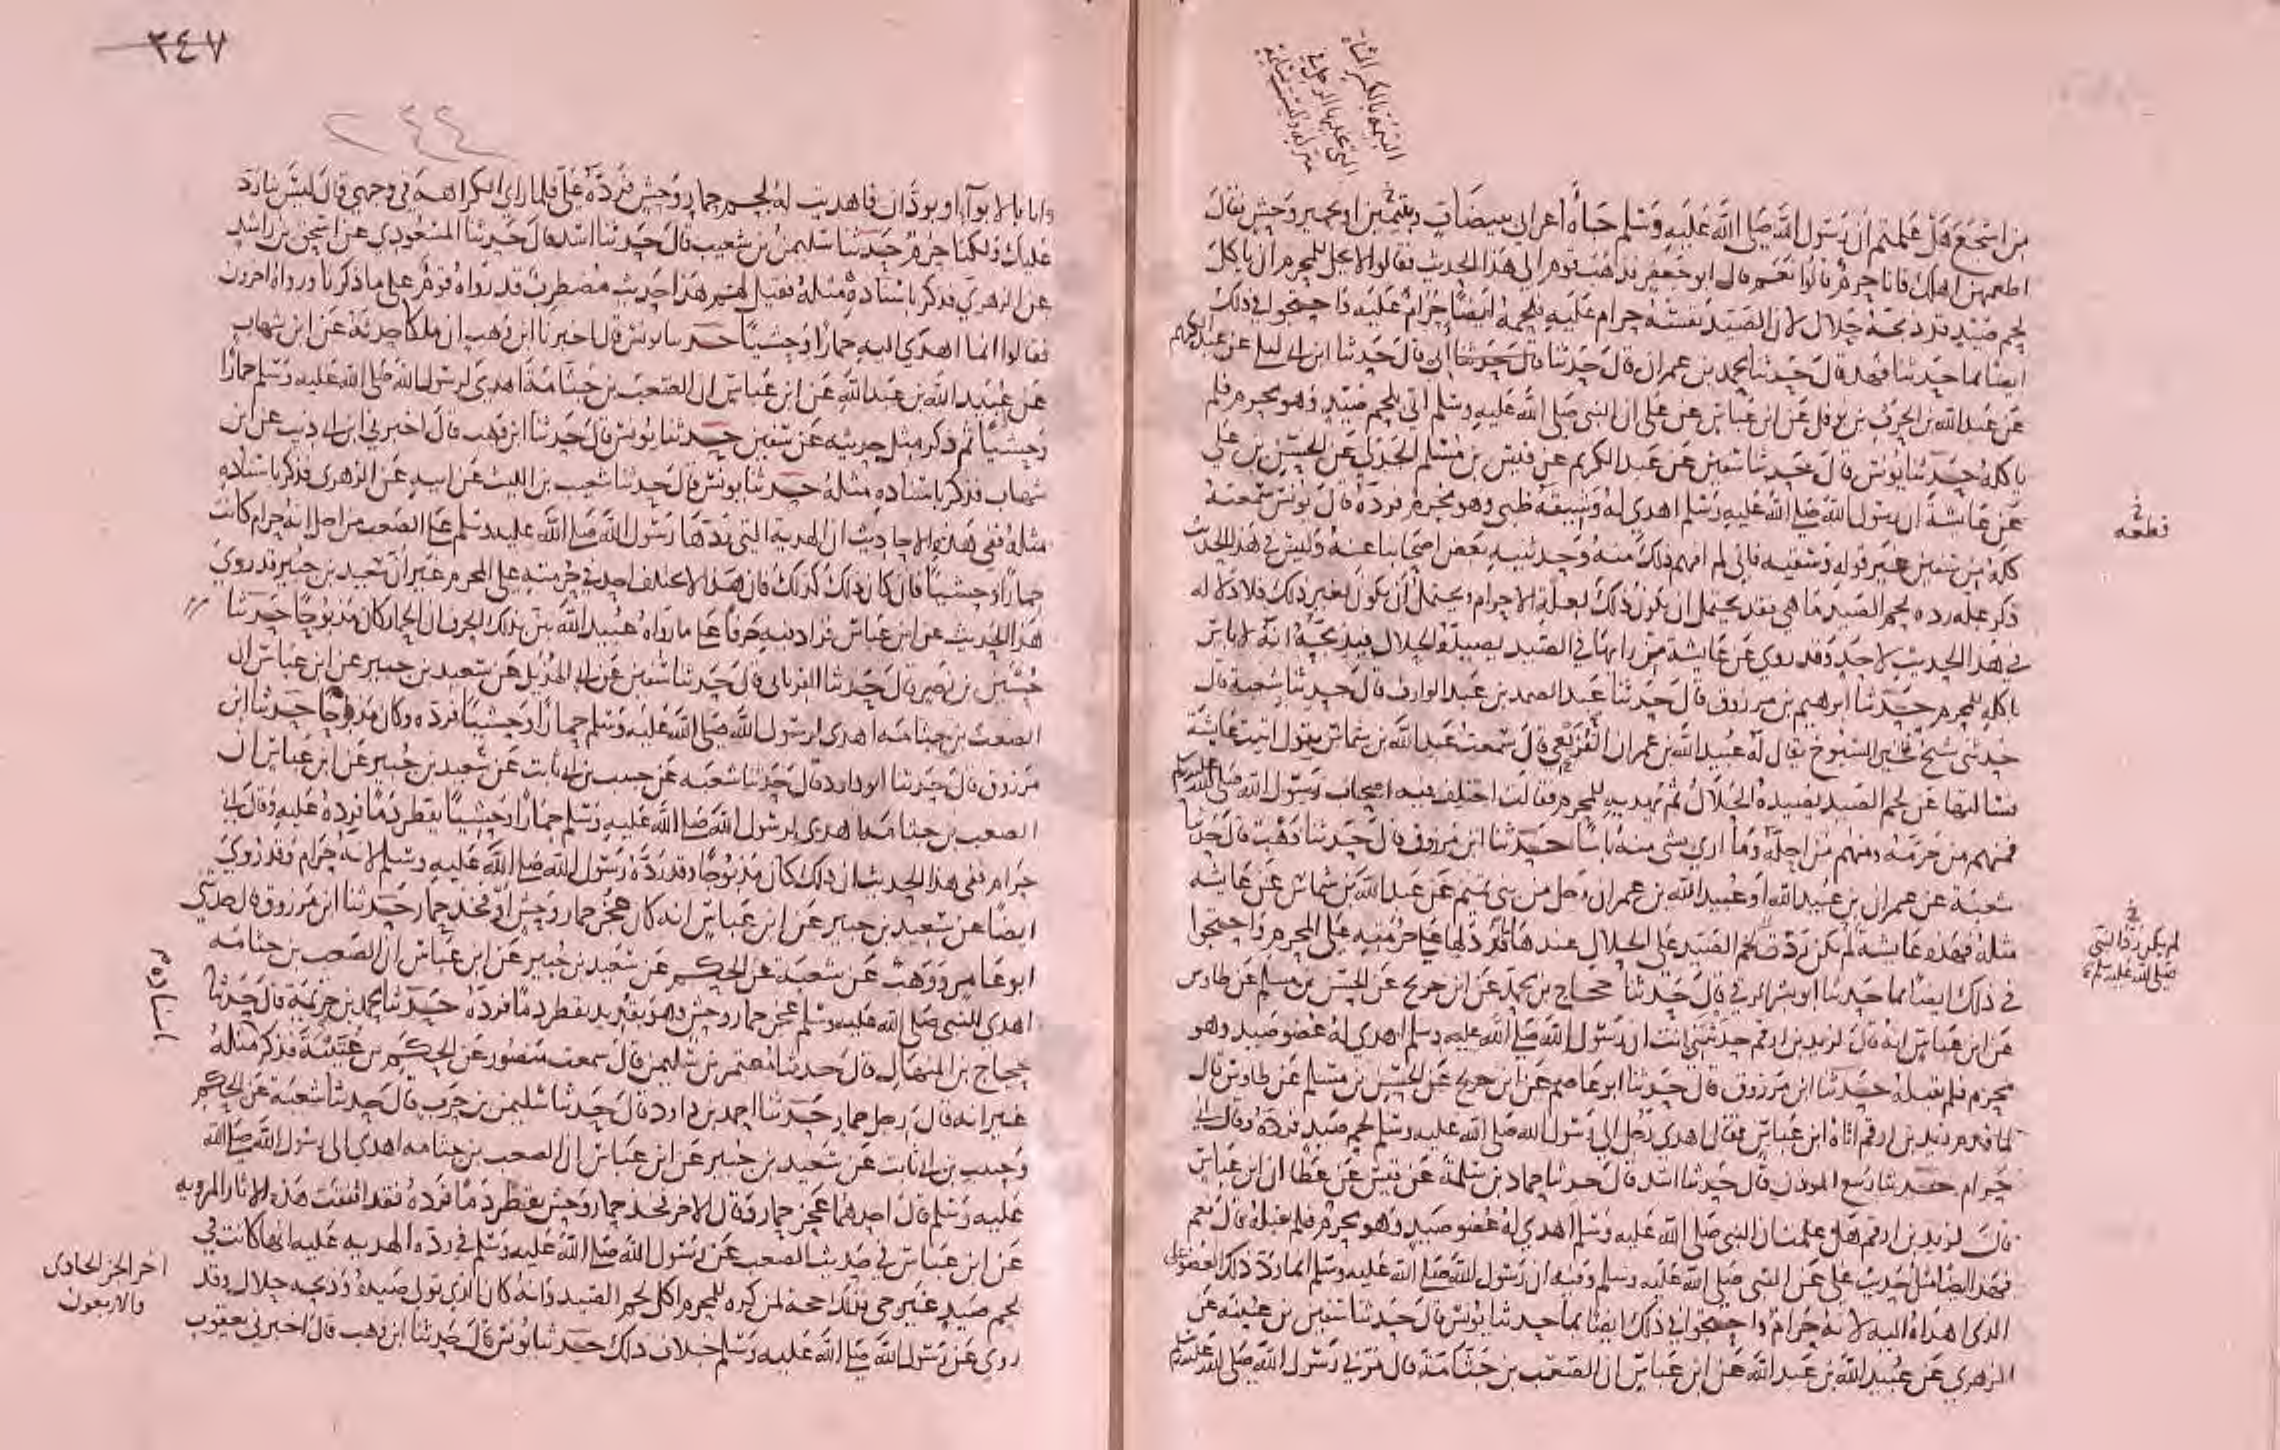 من اشجع هل علمتم ان رسول الله صلى الله عليه وسلم جاه اعرابي ببيضات وبتتمير او حمير وحش فقال
اطعمهن اهلك فانا حرم قالوا نعم قال ابو جعفر فذهب قوم الى هذا الحديث فقالوا لا يحل للمحرم ان ياكل
لحم صيد قد ذبحه حلال لان الصيد نفسه حرام عليه فلحمه ايضا حرام عليه واحتجوا في ذلك
ايضا بما حدثنا فهد قال حدثنا محمد بن عمران قال حدثنا قال حدثنا ابي قال حدثنا ابن ابي ليلى عن عبد الكريم
عن عبد الله بن الحرث بن نوفل عن ابن عباس عن علي ان النبي صلى الله عليه وسلم اتي بلحم صيد وهو محرم فلم
ياكله حدثنا يونس قال حدثنا سفين عن عبد الكريم عن قيس بن مسلم الجدلي عن الحسن بن علي
عن عايشة ان رسول الله صلى الله عليه وسلم اهدي له وشيقة ظبي وهو محرم فرده قال يونس سمعته
كله من سفين غير قوله وشقيه فاني لم افهم ذلك منه وحدثنيه بعض اصحابنا عنه وليس في هذا الحديث
ذكر علة رده لحم الصيد ما هي فقد يحتمل ان يكون ذلك لعلة الاحرام ويحتمل ان يكون لغير ذلك فلا دلاله
في هذا الحديث لاحد وقد روي عن عايشة من رايها في الصيد يصيده الحلال فيذبحه انه لا باس
باكله للمحرم حدثنا ابرهيم بن مرزوق قال حدثنا عبد الصمد بن عبد الوارث قال حدثنا شعبة قال
حدثني شيخ يقال له عبيد الله بن عمران القريعي قال سمعت عبد الله بن شماس يقول اتيت عايشة
فسالتها عن لحم الصيد يصيده الحلال ثم يهديه للمحرم فقالت اختلف فيه اصحاب رسول الله صلى الله عليه وسلم
فمنهم من حرمه ومنهم من احله وما ارى بشي منه باسا حدثنا ابن مرزوق قال حدثنا وهب قال حدثنا
شعبة عن عمران بن عبيد الله او عبيد الله بن عمران رجل من بني تميم عن عبد الله بن شماس عن عايشة
مثله فهذه عايشة لم يكن رد لحم الصيد على الحلال عندها قد دلها على حرمته على المحرم واحتجوا
في ذلك ايضا بما حدثنا ابو بشر الرقي قال حدثنا حجاج بن محمد عن ابن جريج عن الحسن بن مسلم عن طاوس
عن ابن عباس انه قال لزيد بن ارقم حدثتني انت ان رسول الله صلى الله عليه وسلم اهدي له عضو صيد وهو
محرم فلم يقبله حدثنا ابن مرزوق قال حدثنا ابو عاصم عن ابن جريج عن الحسن بن مسلم عن طاوس قال
لما قدم زيد بن ارقم اتاه ابن عباس فقال اهدى رجل الى رسول الله صلى الله عليه وسلم لحم صيد فرده وقال اني
حرام حدثنا ربيع الموذن قال حدثنا اسد قال حدثنا حماد بن سلمة عن قيس عن عطا ان ابن عباس
قال لزيد بن ارقم هل علمت ان النبي صلى الله عليه وسلم اهدي له عضو صيد وهو محرم فلم يقبله قال نعم
فهذا ايضا مثل حديث علي عن النبي صلى الله عليه وسلم وفيه ان رسول الله صلى الله عليه وسلم انما رد ذلك العضو على
الذي اهداه اليه لانه حرام واحتجوا في ذلك ايضا بما حدثنا يونس قال حدثنا سفين بن عيينة عن
الزهري عن عبيد الله بن عبد الله عن ابن عباس ان الصعب بن جثامة قال مر بي رسول الله صلى الله عليه وسلم
قطعه
لم يكن رد النبي
صلى الله عليه وسلم
٣٤٧
٢٤٤
وانا بالابوآ او بودان فاهديت له لحم حمار وحش فرده علي فلما راى الكراهة في وجهي قال ليس بنا رد
عليك ولكنا حرم حدثنا سليمن بن شعيب قال حدثنا اسد قال حدثنا المسعودي عن اسحق بن راشد
عن الزهري فذكر باسناده مثله فقيل لهم هذا حديث مضطرب قد رواه قوم على ما ذكرنا ورواه اخرون
فقالوا انما اهدى اليه حمارا وحشيا حدثنا يونس قال اخبرنا ابن وهب ان ملكا حدثه عن ابن شهاب
عن عبيد الله بن عبد الله عن ابن عباس ان الصعب بن جثامة اهدى لرسول الله صلى الله عليه وسلم حمارا
وحشيا ثم ذكر مثل حديثه عن سفين حدثنا يونس قال حدثنا ابن وهب قال اخبرني ابن ابي ذيب عن ابن
شهاب فذكر باسناده مثله حدثنا يونس قال حدثنا شعيب بن الليث عن ابيه عن الزهري فذكر باسناده
مثله ففي هذه الاحاديث ان الهدية التي ردها رسول الله صلى الله عليه وسلم على الصعب من اجل انه حرام كانت
حمارا وحشيا فان كان ذلك كذلك فان هذا لا يختلف احد في حرمته على المحرم غير ان سعيد بن جبير قد روى
هذا الحديث عن ابن عباس فزاد فيه حرفا على ما رواه عبيد الله بين بذلك الحرف ان الحمار كان مذبوحا حدثنا
حسين بن نصر قال حدثنا الفريابي قال حدثنا سفين عن ابي الهذيل عن سعيد بن جبير عن ابن عباس ان
الصعب بن جثامة اهدى لرسول الله صلى الله عليه وسلم حمارا وحشيا فرده وكان مذبوحا حدثنا ابن
مرزوق قال حدثنا ابو داود قال حدثنا شعبه عن حبيب بن ابي ثابت عن سعيد بن جبير عن ابن عباس ان
الصعب بن جثامة اهدى لرسول الله صلى الله عليه وسلم حمارا وحشيا يقطر دما فرده عليه وقال اني
حرام ففي هذا الحديث ان ذلك كان مذبوحا وقد رده رسول الله صلى الله عليه وسلم لانه حرام وقد روي
ايضا عن سعيد بن جبير عن ابن عباس انه كان عجز حمار وحش او فخذ حمار حدثنا ابن مرزوق قال حدثني
ابو عامر ووهب عن شعبة عن الحكم عن سعيد بن جبير عن ابن عباس ان الصعب بن جثامة
اهدى للنبي صلى الله عليه وسلم عجز حمار وحش وهو بقديد يقطر دما فرده حدثنا محمد بن خزيمة قال حدثنا
حجاج بن المنهال قال حدثنا معتمر بن سليمن قال سمعت منصور عن الحكم بن عتيبة فذكر مثله
غير انه قال رجل حمار حدثنا احمد بن داود قال حدثنا سليمن بن حرب قال حدثنا شعبة عن الحكم
وحبيب بن ابي ثابت عن سعيد بن جبير عن ابن عباس ان الصعب بن جثامه اهدى الى رسول الله صلى الله
عليه وسلم قال احدهما عجز حمار وقال الاخر فخذ حمار وحش يقطر دما فرده فقد اتفقت هذه الاثار المرويه
عن ابن عباس في حديث الصعب عن رسول الله صلى الله عليه وسلم في رده الهديه عليه انها كانت في
لحم صيد غير حي فذلك حجة لمن كره للمحرم اكل لحم الصيد وانه كان الذي تولى صيده وذبحه حلال وقد
روي عن رسول الله صلى الله عليه وسلم خلاف ذلك حدثنا يونس قال حدثنا ابن وهب قال اخبرني يعقوب
باسناده
اخر الجز الحادى
والاربعون